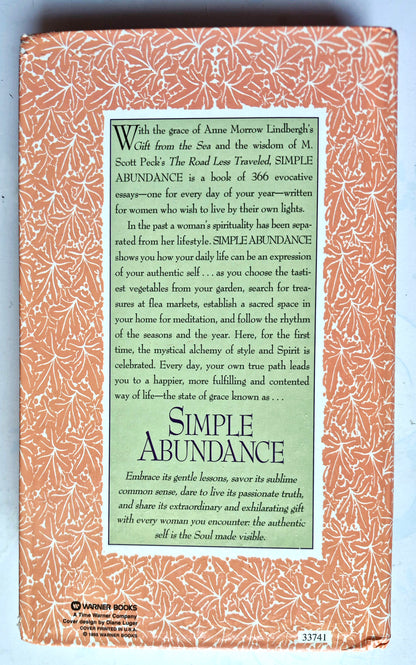 With the grace of Anne Morrow Lindbergh's
Gift from the Sea and the wisdom of M.
Scott Peck's The Road Less Traveled, SIMPLE
ABUNDANCE is a book of 366 evocative
essays—one for every day of your year—written
for women who wish to live by their own lights.
In the past a woman's spirituality has been sepa-
rated from her lifestyle. SIMPLE ABUNDANCE
shows you how your daily life can be an expression
of your authentic self . . . as you choose the tasti-
est vegetables from your garden, search for trea-
sures at flea markets, establish a sacred space in
your home for meditation, and follow the rhythm
of the seasons and the year. Here, for the first
time, the mystical alchemy of style and Spirit is
celebrated. Every day, your own true path leads
you to a happier, more fulfilling and contented
way of life—the state of grace known as . . .
SIMPLE
ABUNDANCE
Embrace its gentle lessons, savor its sublime
common sense, dare to live its passionate truth,
and share its extraordinary and exhilarating gift
with every woman you encounter: the authentic
self is the Soul made visible.
WARNER BOOKS
A Time Warner Company
Cover design by Diane Luger
COVER PRINTED IN U.S.A.
© 1995 WARNER BOOKS
33741